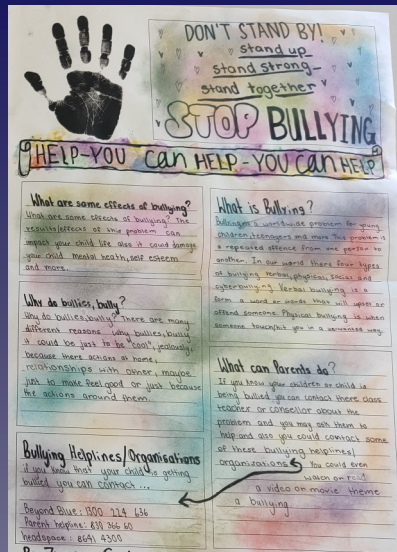 DON'T STAND BY!
stand up
stand strong-
stand together
STOP BULLYING
HELP-YOU can HELP-YOU can HELP
What are some effects of bullying?
What are some effects of bullying? The
results/effects of this problem can
impact your child life also it could damage
your child mental health, self esteem
and more.
Why do bullies, bully?
Why do bullies, bully? There are many
different reasons why bullies, bully
it could be just to be "cool", jealously,
because there actions at home,
relationships with other, maybe
just to make feel good or just because
the actions around them.
Bullying Helplines/Organisations
if you know that your child is getting
bullied you can contact...
Beyond Blue: 1300 224 636
Parent helpline: 
headspace: 8641 4300
What is Bullying?
Bullying is a worldwide problem for young
children, teenagers and more. The problem is
a repeated offence from one person to
another. In our world there four types
of bullying verbal, physical, social and
cyberbullying. Verbal bullying is a
form a word or words that will upset or
offend someone. Physical bullying is when
someone touch/hit you in a way
What can Parents do?
If you know your children or child is
being bullied you can contact there class
teacher or consellor about the
problem and you may ask them to
help and also you could contact some
of these bullying helplines/
organizations You could even
watch or read
a video or movie theme
a bullying.